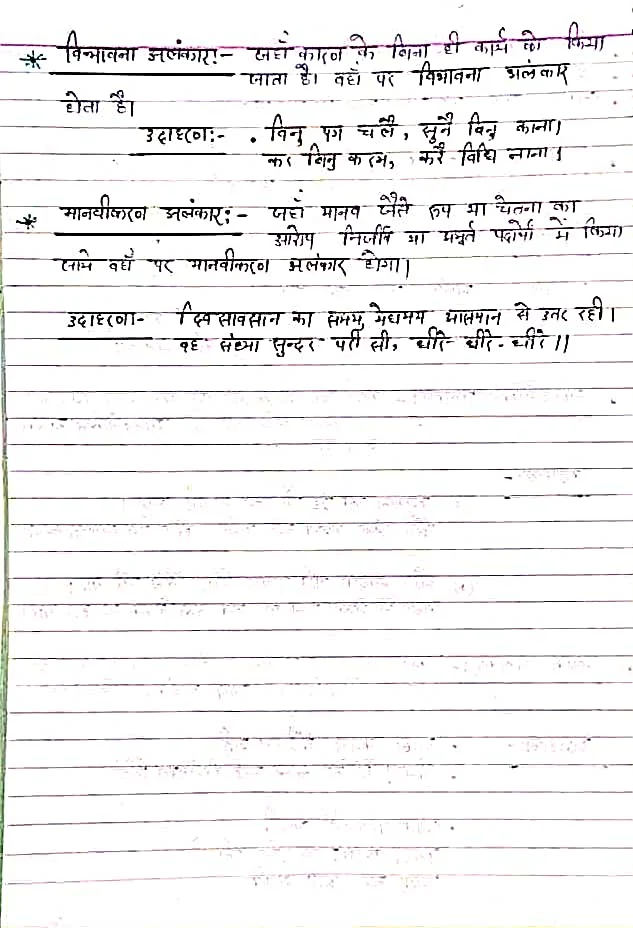 * विभावना अलंकार:- जहाँ कारण के बिना ही कार्य को किया
जाता है। वहाँ पर विभावना अलंकार
होता है।
उदाहरण:- . विनु पग चलै, सुनै विनु काना।
कर विनु करम, करै विधि नाना।
* मानवीकरण अलंकार:- जहाँ मानव जैसे रूप या चेतना का
आरोप निर्जीव या अमूर्त पदार्थो में किया
जाये वहाँ पर मानवीकरण अलंकार होगा।
उदाहरण- दिवसावसान का समय, मेघमय आसमान से उतर रही।
वह संध्या सुन्दर परी सी, धीरे धीरे-धीरे।।